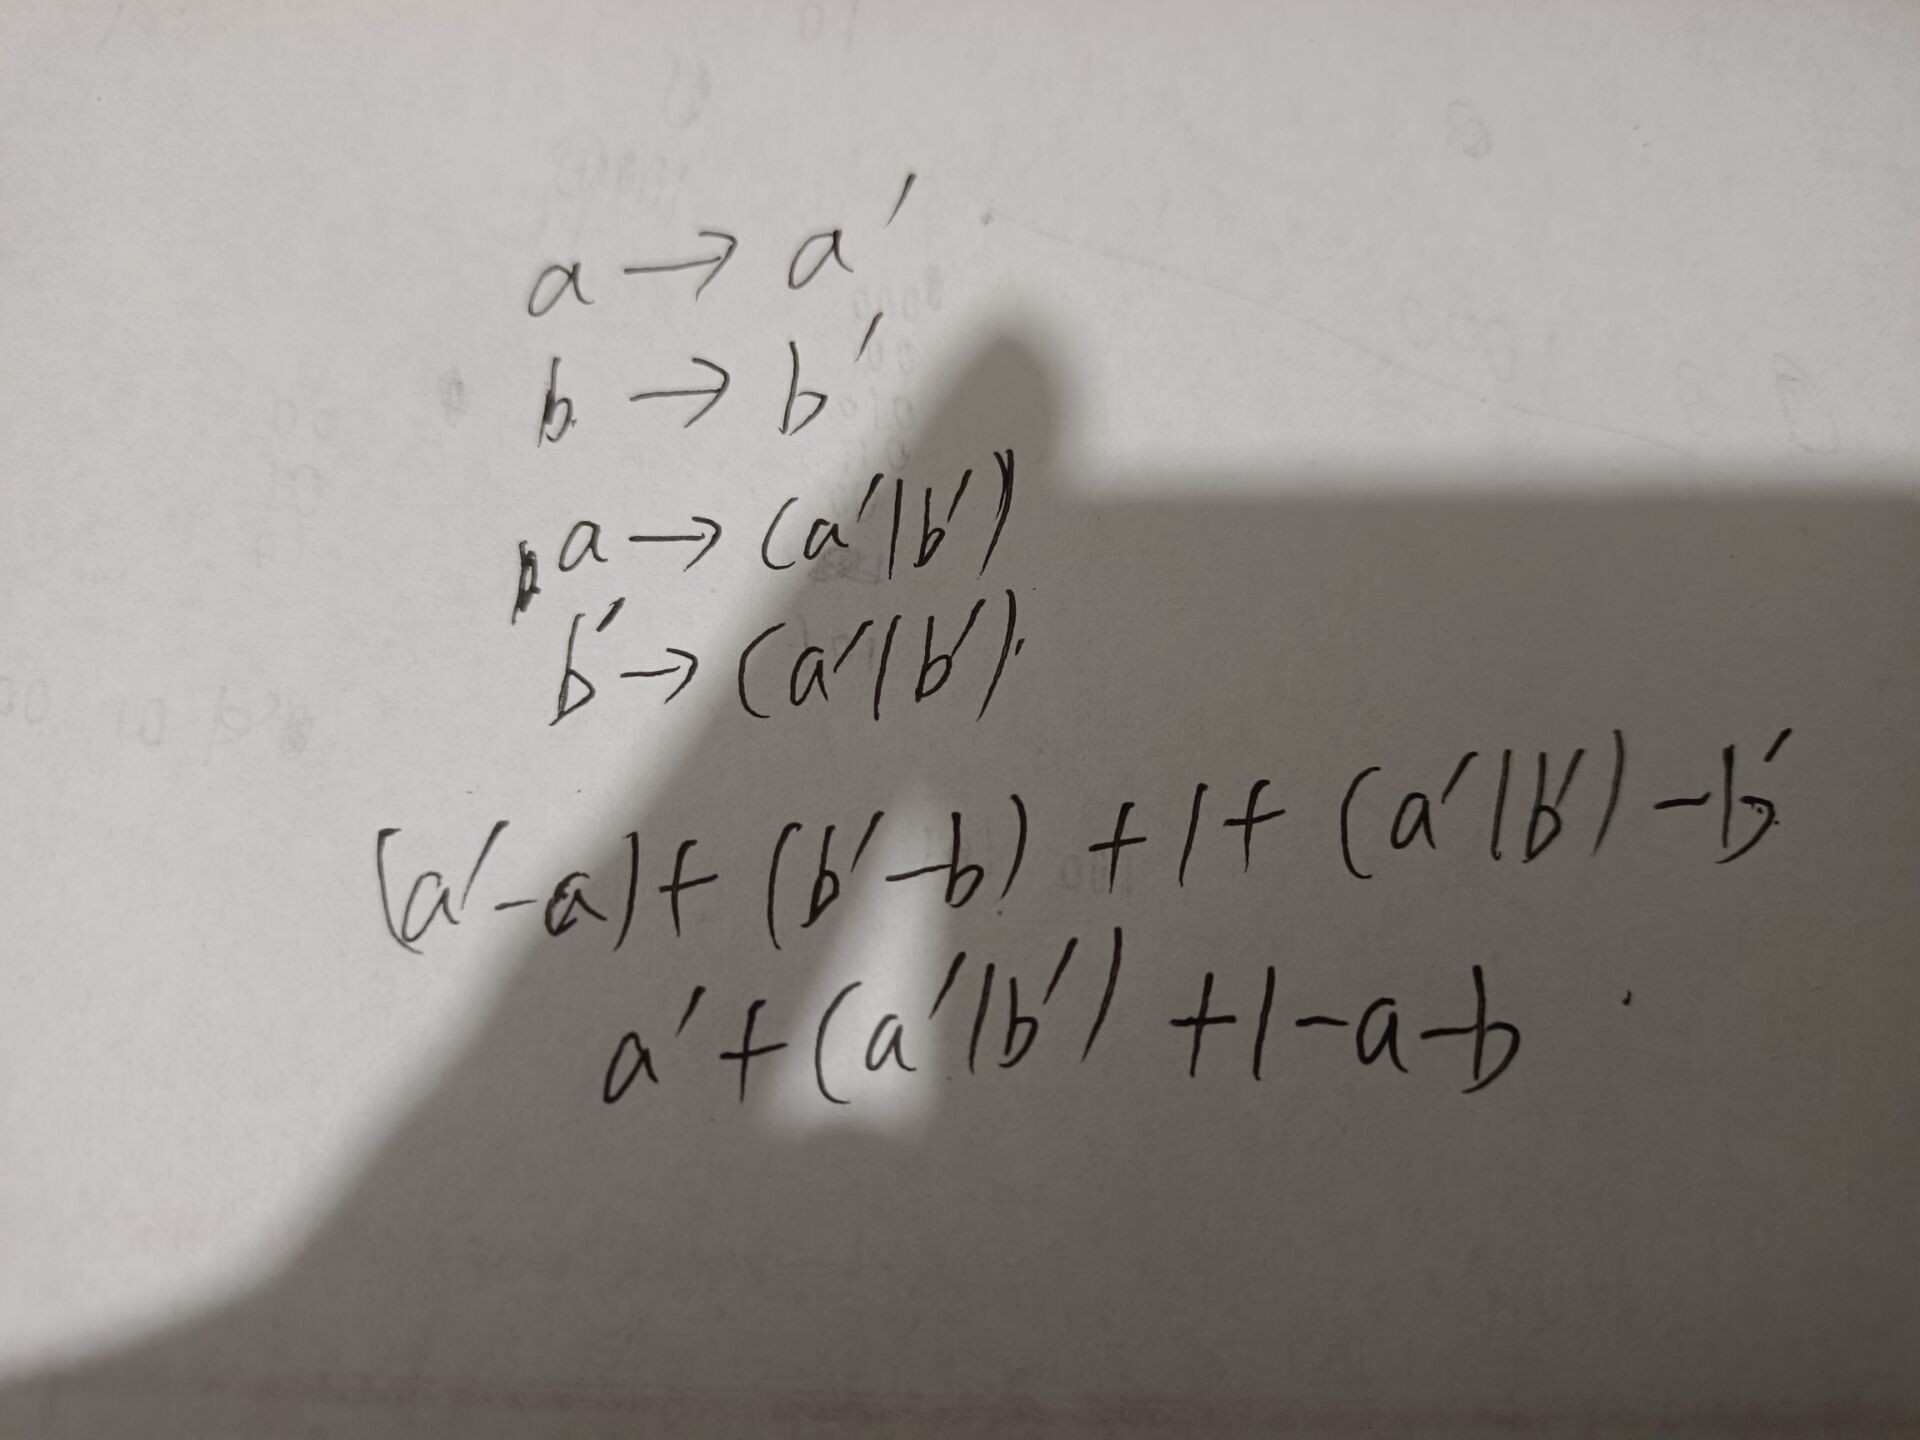 a → a'
b → b'
a → (a'|b')
b' → (a'|b').
(a'-a)+(b'-b)+1+(a'|b')-b'
a'+(a'|b')+1-a-b